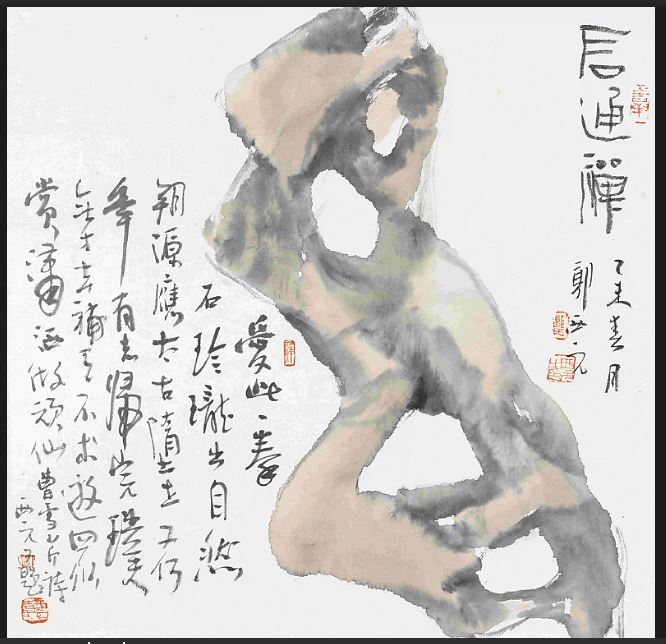 石通禪
乙未春月
郭西元
愛此一拳
石玲瓏出自然
溯源應太古墮世又何
年有志歸完璞
無才去補天不求邀眾
賞瀟洒做頑仙曹雪芹詩
西元又題